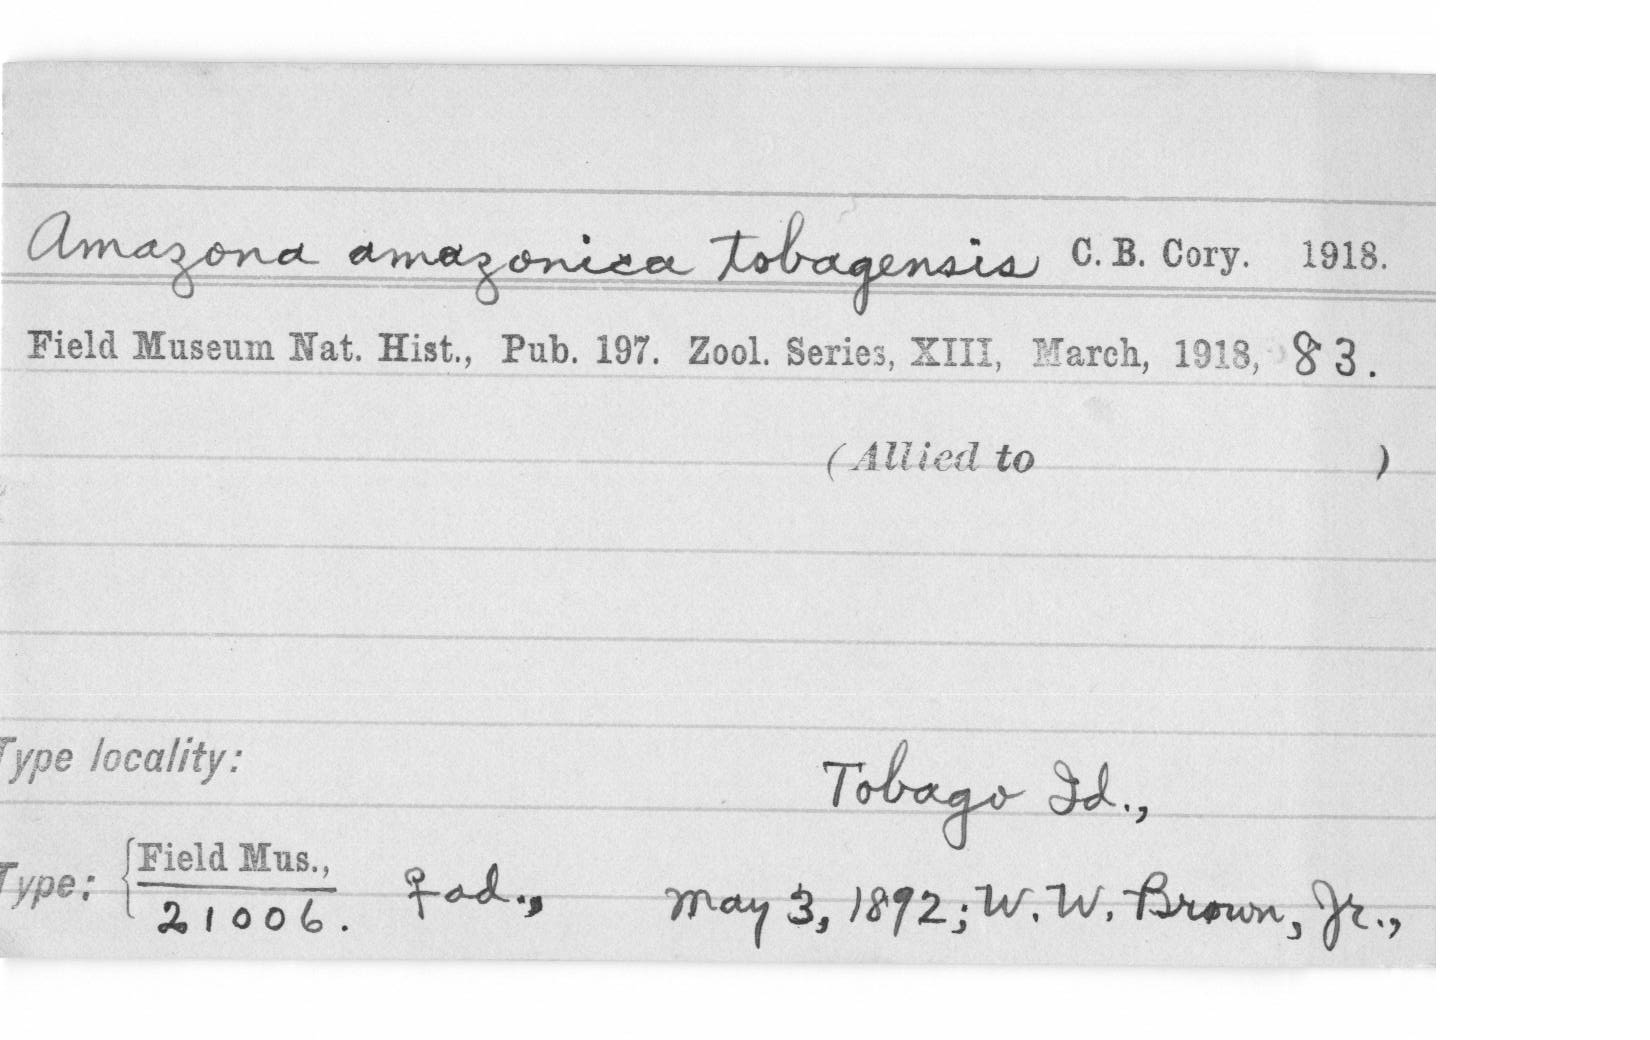 Amazona amazonica tobagensis C. B. Cory. 1918.
Field Museum Nat. Hist., Pub. 197. Zool. Series, XIII, March, 1918, 83.
(Allied to )
Type locality:
Tobago Id.,
Type: { Field Mus., 21006. ♀ ad., May 3, 1892; W. W. Brown, Jr.,